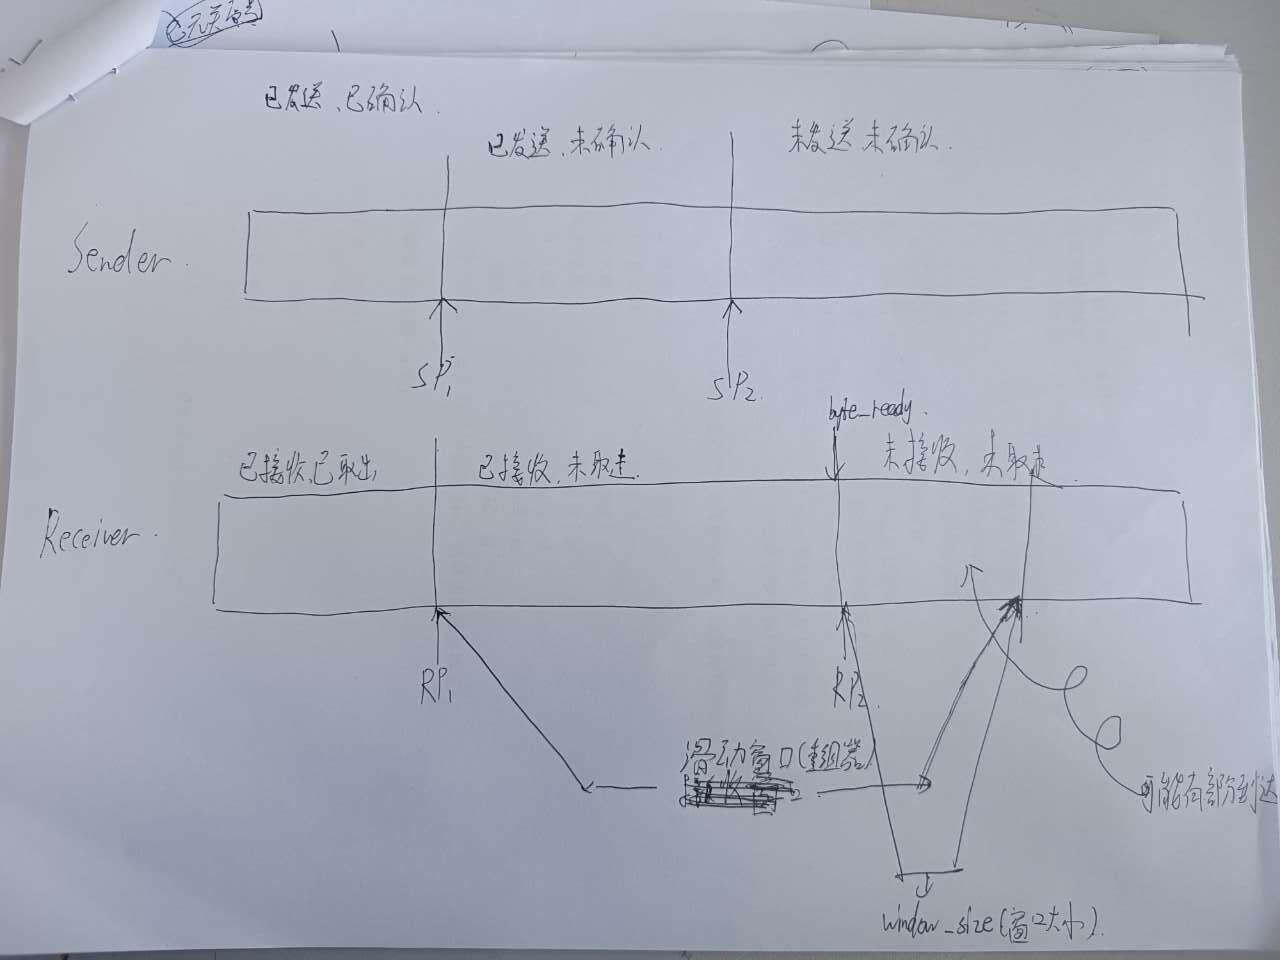 已发送、已确认.
已发送、未确认.
未发送、未确认.
Sender.
SP1
SP2.
byte_ready.
已接收、已取出
已接收、未取走.
未接收, 未取走
Receiver.
RP1
RP2.
滑动窗口(重组器)
可能有部分到达
window_size(窗口大小).